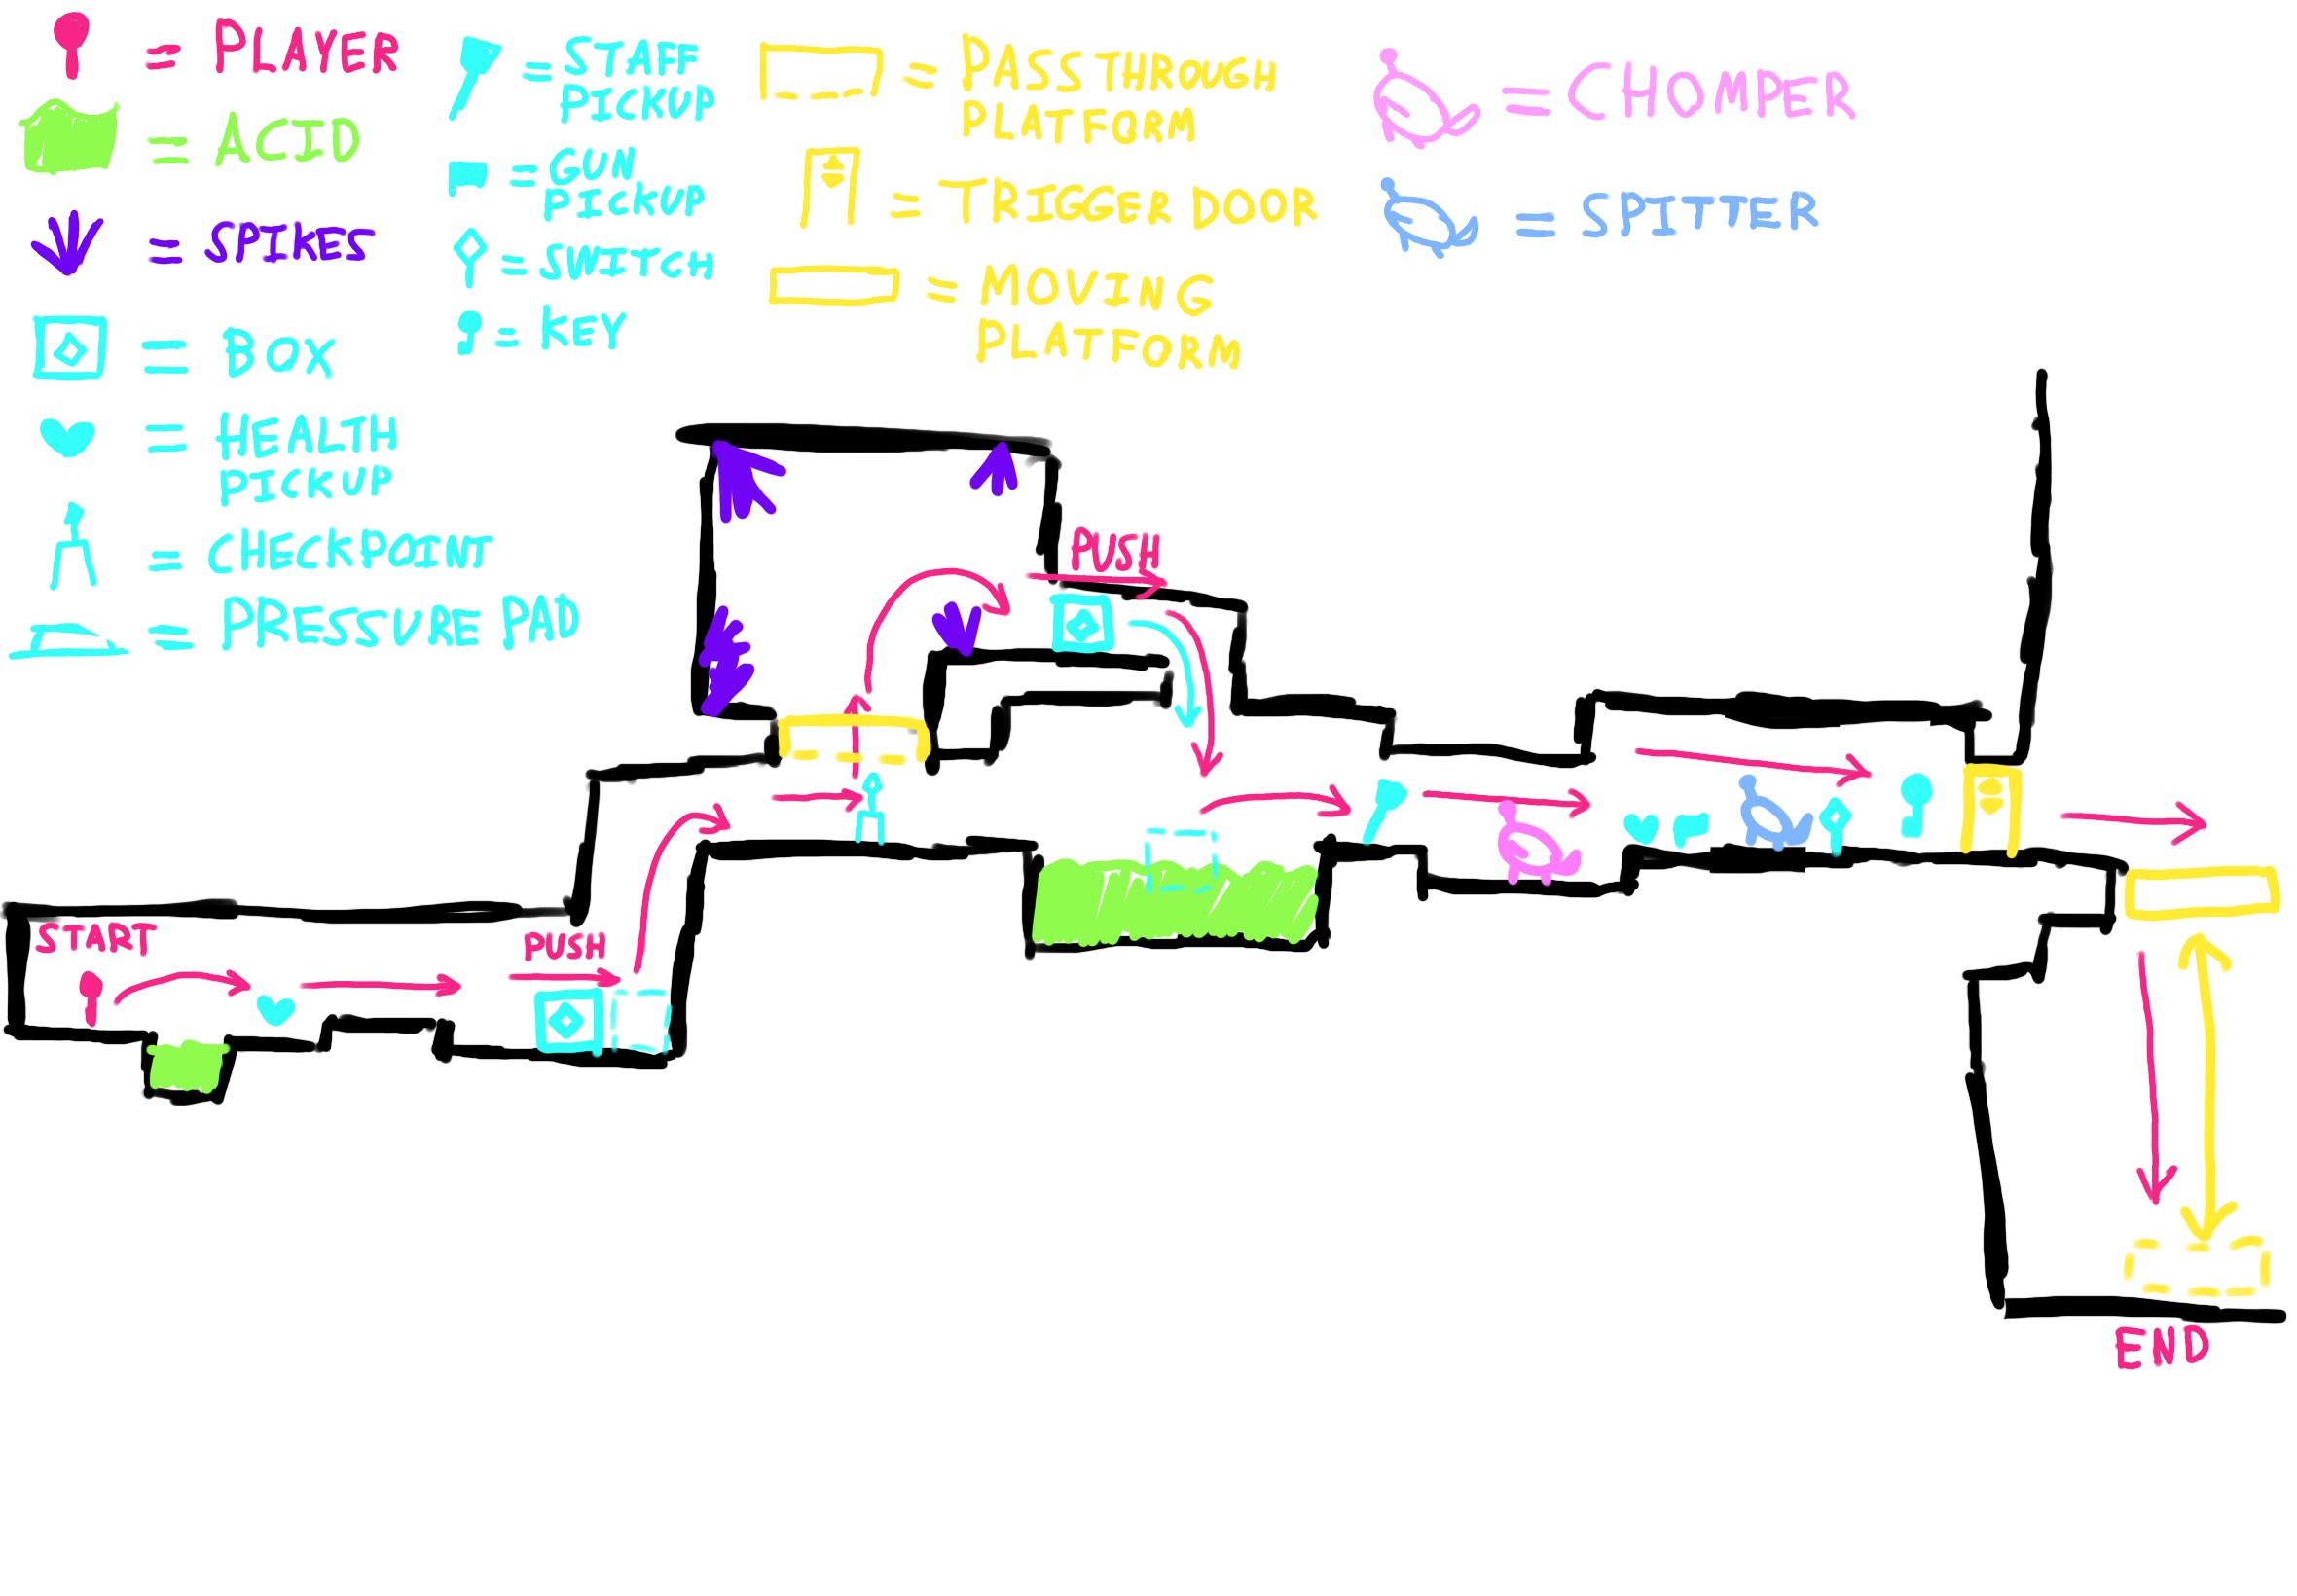 = PLAYER
= ACID
= SPIKES
= BOX
= HEALTH
PICKUP
= CHECKPOINT
= PRESSURE PAD
= STAFF
PICKUP
= GUN
PICKUP
= SWITCH
= KEY
= PASSTHROUGH
PLATFORM
= TRIGGER DOOR
= MOVING
PLATFORM
= CHOMPER
= SPITTER
PUSH
START
PUSH
END